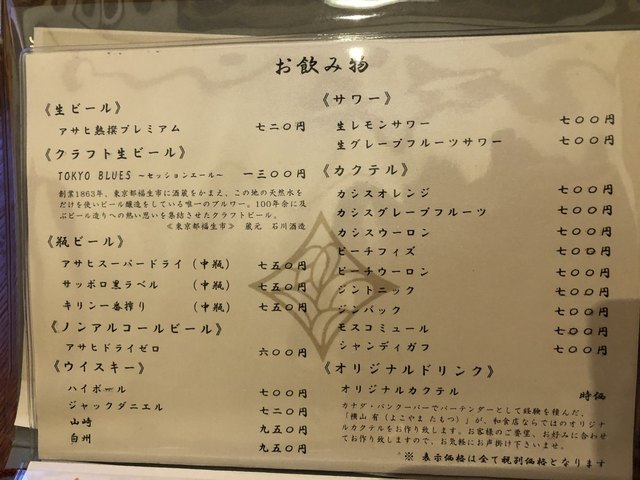 お飲み物
《生ビール》
アサヒ熟撰プレミアム 七二〇円
《クラフト生ビール》
TOKYO BLUES 〜セッションエール〜 一三〇〇円
創業1863年、東京都福生市に酒蔵をかまえ、この地の天然水を
だけを使いビール醸造をしている唯一のブルワー。100年余に及
ぶビール造りへの熱い思いを集結させたクラフトビール。
≪東京都福生市≫ 蔵元 石川酒造
《瓶ビール》
アサヒスーパードライ (中瓶) 七五〇円
サッポロ黒ラベル (中瓶) 七五〇円
キリン一番搾り (中瓶) 七五〇円
《ノンアルコールビール》
アサヒドライゼロ 六〇〇円
《ウイスキー》
ハイボール 七〇〇円
ジャックダニエル 七二〇円
山崎 九五〇円
白州 九五〇円
《サワー》
生レモンサワー 七〇〇円
生グレープフルーツサワー 七〇〇円
《カクテル》
カシスオレンジ 七〇〇円
カシスグレープフルーツ 七〇〇円
カシスウーロン 七〇〇円
ピーチフィズ 七〇〇円
ピーチウーロン 七〇〇円
ジントニック 七〇〇円
ジンバック 七〇〇円
モスコミュール 七〇〇円
シャンディガフ 七〇〇円
《オリジナルドリンク》
オリジナルカクテル 時価
カナダ・バンクーバーでバーテンダーとして経験を積んだ、
「横山 有(よこやま たもつ)」が、和食店ならではのオリジナ
ルカクテルをお作り致します。お客様のご要望、お好みに合わせ
てお作り致しますので、お気軽にお声掛け下さいませ。
※ 表示価格は全て税別価格となります